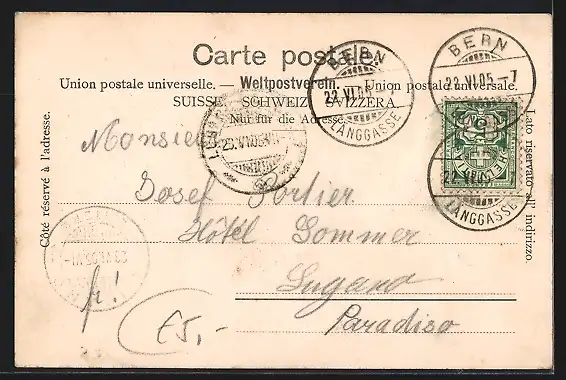 Carte postale.
Union postale universelle. — Weltpostverein. — Unione postale universale.
SUISSE. SCHWEIZ. SVIZZERA.
Nur für die Adresse.
Côté réservé à l'adresse.
Lato riservato all' indirizzo.
BERN
22.VI.05
LÄNGGASSE
BERN
22.VI.05.-7
LÄNGGASSE
5
23.VI.05
Monsieur
Josef Portier
Hôtel Sommer
Lugano
Paradiso
fr!
E5,-